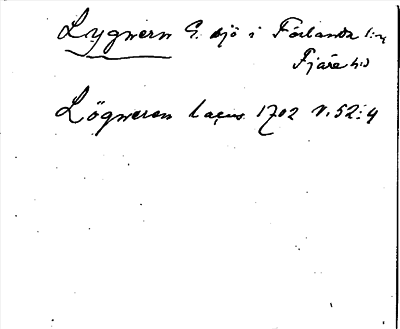 Lygnern S. sjö i Förlanda sn,
Fjäre hd
Lögneren lacus 1702 N. 52:4